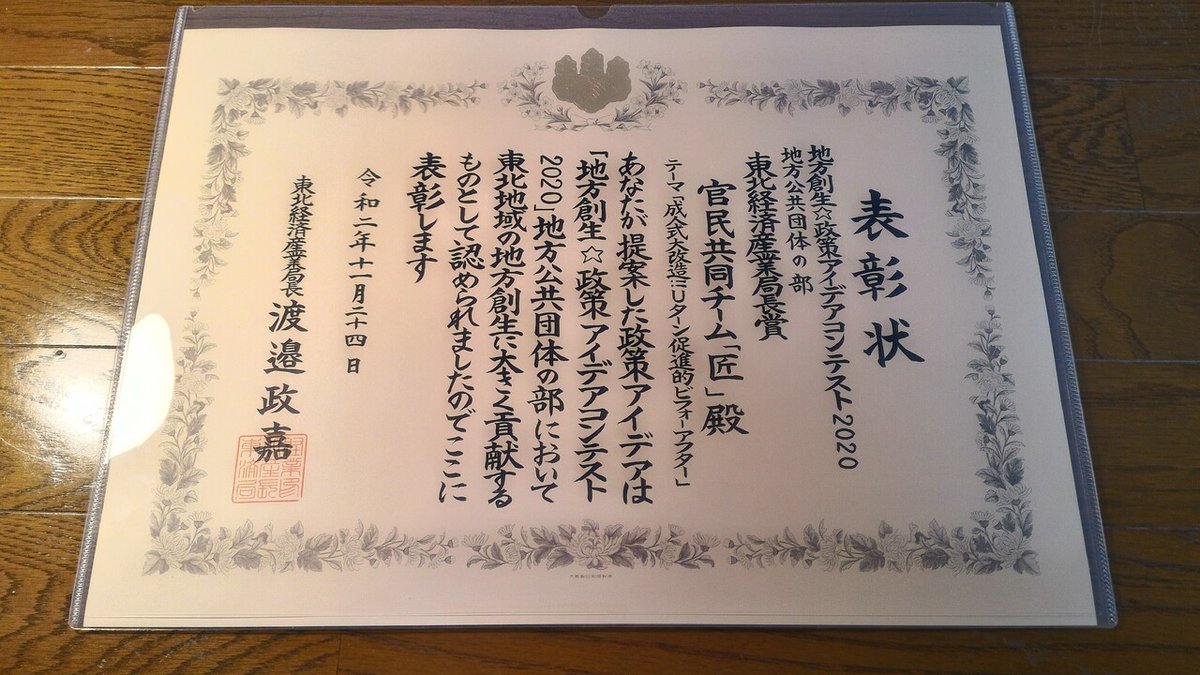 表彰状
地方創生☆政策アイデアコンテスト2020
地方公共団体の部
東北経済産業局長賞
官民共同チーム「匠」殿
テーマ「成人式大改造!!Uターン促進的ビフォーアフター」
あなたが提案した政策アイデアは
「地方創生☆政策アイデアコンテスト
2020」地方公共団体の部において
東北地域の地方創生に大きく貢献する
ものとして認められましたのでここに
表彰します
令和二年十一月二十四日
東北経済産業局長 渡邉政嘉